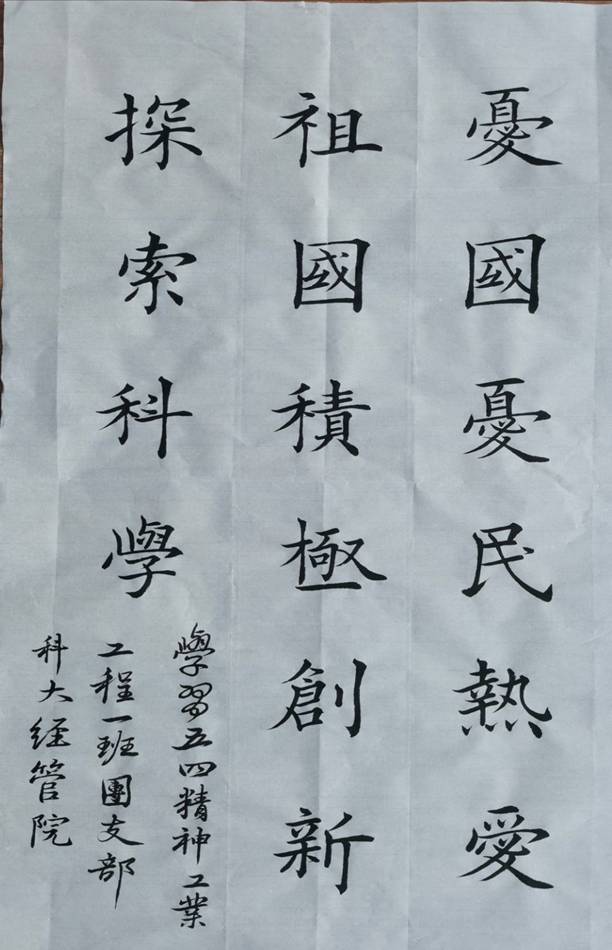 憂國憂民熱愛
祖國積極創新
探索科學
學習五四精神工業
工程一班團支部
科大經管院